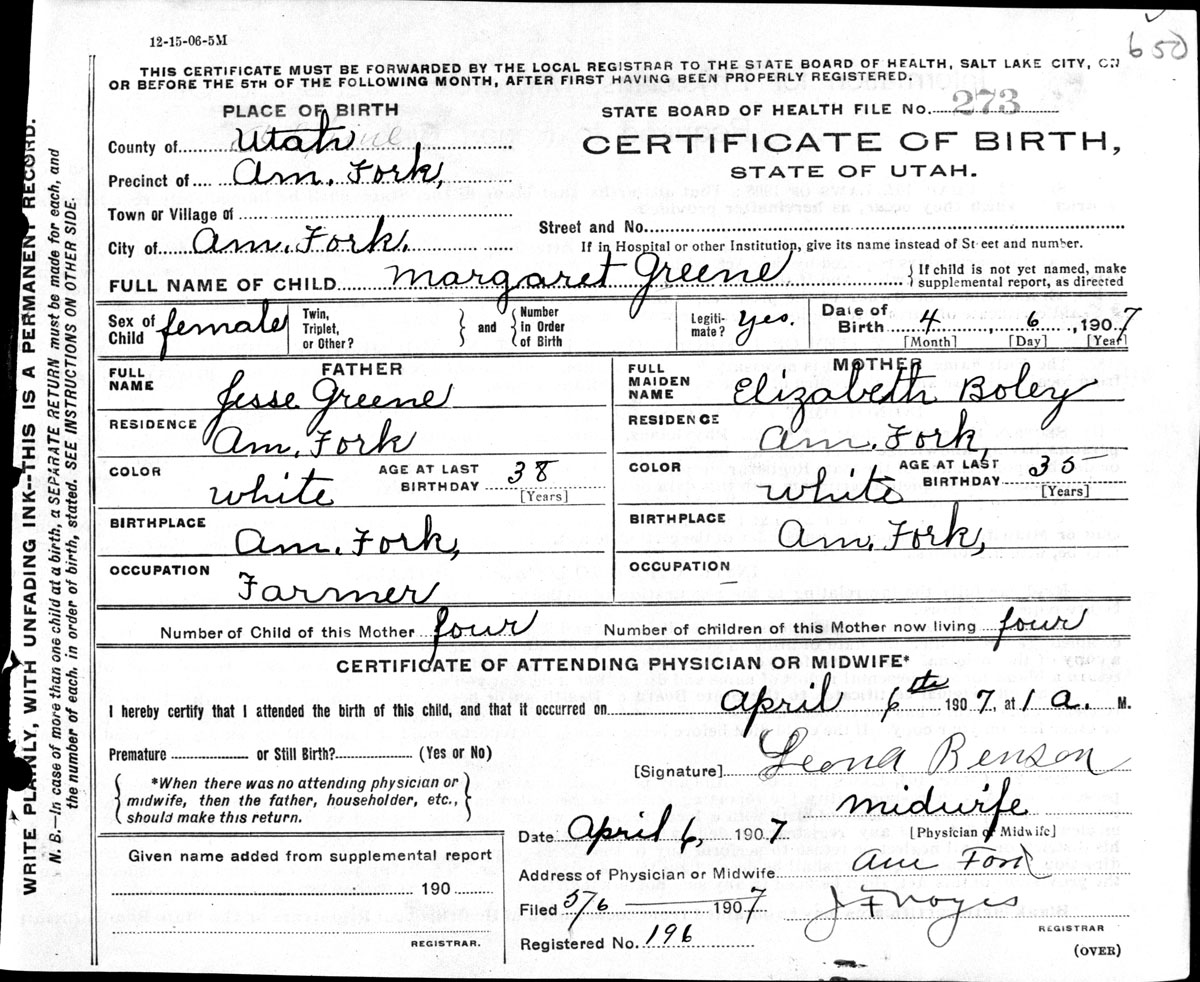 12-15-06-5M
650
THIS CERTIFICATE MUST BE FORWARDED BY THE LOCAL REGISTRAR TO THE STATE BOARD OF HEALTH, SALT LAKE CITY, ON
OR BEFORE THE 5TH OF THE FOLLOWING MONTH, AFTER FIRST HAVING BEEN PROPERLY REGISTERED.
PLACE OF BIRTH
STATE BOARD OF HEALTH FILE No. 273
County of Utah
CERTIFICATE OF BIRTH,
Precinct of Am. Fork,
STATE OF UTAH.
Town or Village of
Street and No.
City of Am. Fork.
If in Hospital or other Institution, give its name instead of Street and number.
FULL NAME OF CHILD Margaret Greene } If child is not yet named, make supplemental report, as directed
Sex of Child female Twin, Triplet, or Other? } and { Number in Order of Birth Legiti- mate? yes. Date of Birth 4, 6, 1907
[Month] [Day] [Year]
FATHER
MOTHER
FULL NAME Jesse Greene
FULL MAIDEN NAME Elizabeth Boley
RESIDENCE Am. Fork
RESIDENCE Am. Fork,
COLOR white AGE AT LAST BIRTHDAY 38 [Years]
COLOR white AGE AT LAST BIRTHDAY 35 [Years]
BIRTHPLACE Am. Fork,
BIRTHPLACE Am. Fork,
OCCUPATION Farmer
OCCUPATION –
Number of Child of this Mother four Number of children of this Mother now living four
CERTIFICATE OF ATTENDING PHYSICIAN OR MIDWIFE*
I hereby certify that I attended the birth of this child, and that it occurred on April 6th 1907, at 1 a. M.
Premature or Still Birth? (Yes or No)
[Signature] Leona Benson
*When there was no attending physician or
midwife, then the father, householder, etc.,
should make this return.
midwife
Date April 6, 1907 [Physician or Midwife]
Given name added from supplemental report
190
REGISTRAR.
Address of Physician or Midwife Am Fork
Filed 5/6 1907 J F Noyes
REGISTRAR
Registered No. 196
(OVER)
WRITE PLAINLY, WITH UNFADING INK--THIS IS A PERMANENT RECORD.
N. B.—In case of more than one child at a birth, a SEPARATE RETURN must be made for each, and
the number of each, in order of birth, stated. SEE INSTRUCTIONS ON OTHER SIDE.